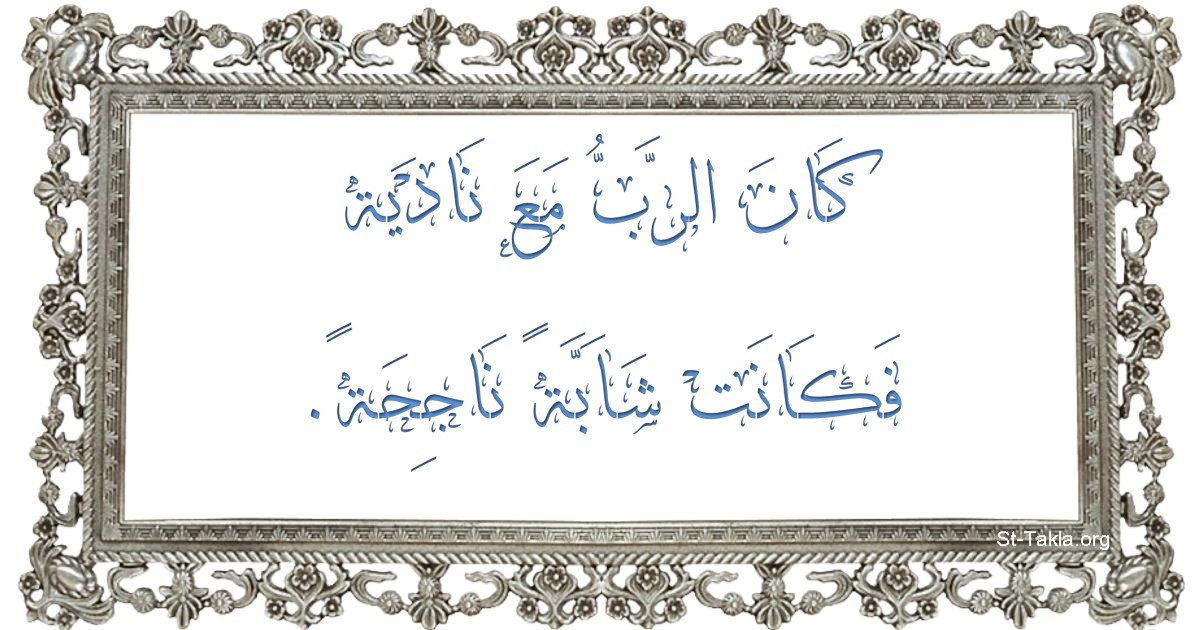 كَانَ الرَّبُّ مَعَ نَادْيَة
فَكَانَتْ شَابَّةً نَاجِحَةً.
St-Takla.org